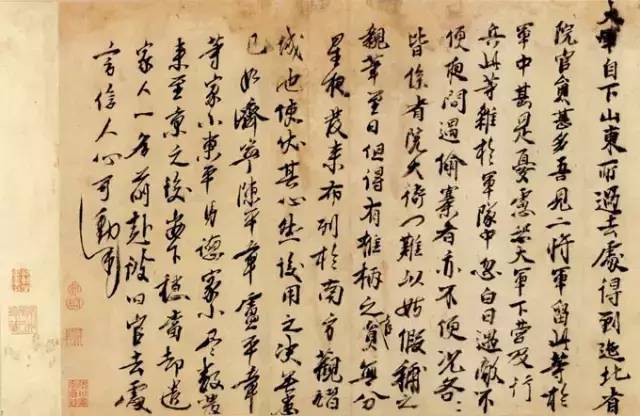 大軍自下山東所過去處得到迤北省
院官員甚多吾見二將軍留此等於
軍中甚是憂慮恐大軍下營及行
兵此等雜於軍隊中忽白日遇敵不
便夜間遇偷寨者亦不便況各各
皆係省院大衙門難以姑假補之
親筆至日但得有椎柄之官員無分
星夜發來布列於南方觀
城池使伏其心然後用之決無患
已如濟寧陳平章盧平章
等家小東平馬德家小盡數發
來至京之後安下穩當却遣
家人一名前赴彼旧官去處
言信人心可動